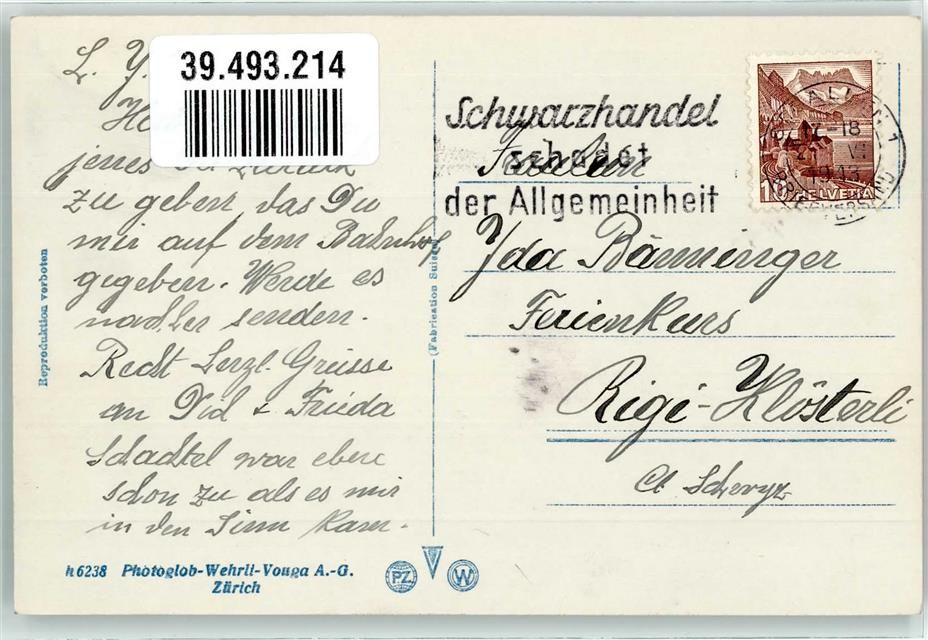 39.493.214
L. Y.
jenes
zu geben das Du
mir auf dem Bahnhof
gegeben. Werde es
nachher senden.
Recht herzl. Grüsse
an Did & Frieda
Schachtel war eben
schon zu als es mir
in den Sinn kam.
Reproduktion verboten
h 6238 Photoglob-Wehrli-Vouga A.-G.
Zürich
PZ
W
(Fabrication Suisse)
Schwarzhandel
schadet
der Allgemeinheit
17-18
1943
10 HELVETIA
Fräulein
Yda Bänninger
Ferienkurs
Rigi-Klösterli
Ct. Schwyz